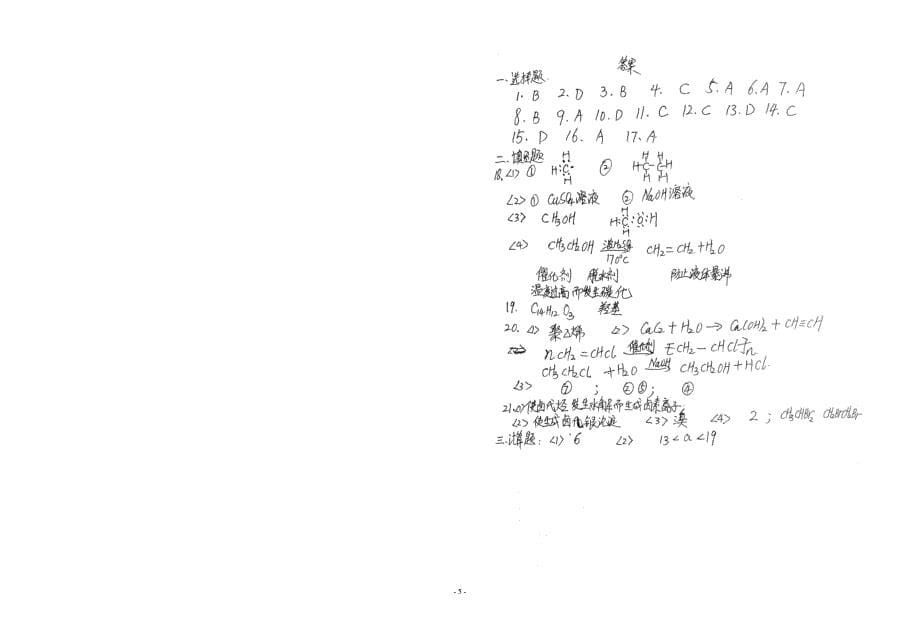 答案
一.选择题
1. B 2. D 3. B 4. C 5. A 6. A 7. A
8. B 9. A 10. D 11. C 12. C 13. D 14. C
15. D 16. A 17. A
二.填空题
18. <1> ① H:C: H H ② H-C-C-H H H H H
<2> ① CuSO4溶液 ② NaOH溶液
<3> CH3OH H:C:O:H H H
<4> CH3CH2OH 浓H2SO4 170°C CH2=CH2+H2O
催化剂 脱水剂 防止液体暴沸
温度过高而发生碳化
19. C14H12O3 羟基
20. <1> 聚乙烯 <2> CaC2 + H2O → Ca(OH)2 + CH≡CH
nCH2=CHCl 催化剂 ⁅CH2-CHCl⁆n
CH3CH2Cl + H2O NaOH CH3CH2OH + HCl
<3> ① ; ②⑤ ; ④
21. <1> 使卤代烃发生水解而生成卤素离子
<2> 使生成卤化银沉淀 <3> 溴 <4> 2 ; CH3CHBr2 CH2BrCH2Br
三.计算题: <1> 6 <2> 13<a<19
- 5 -